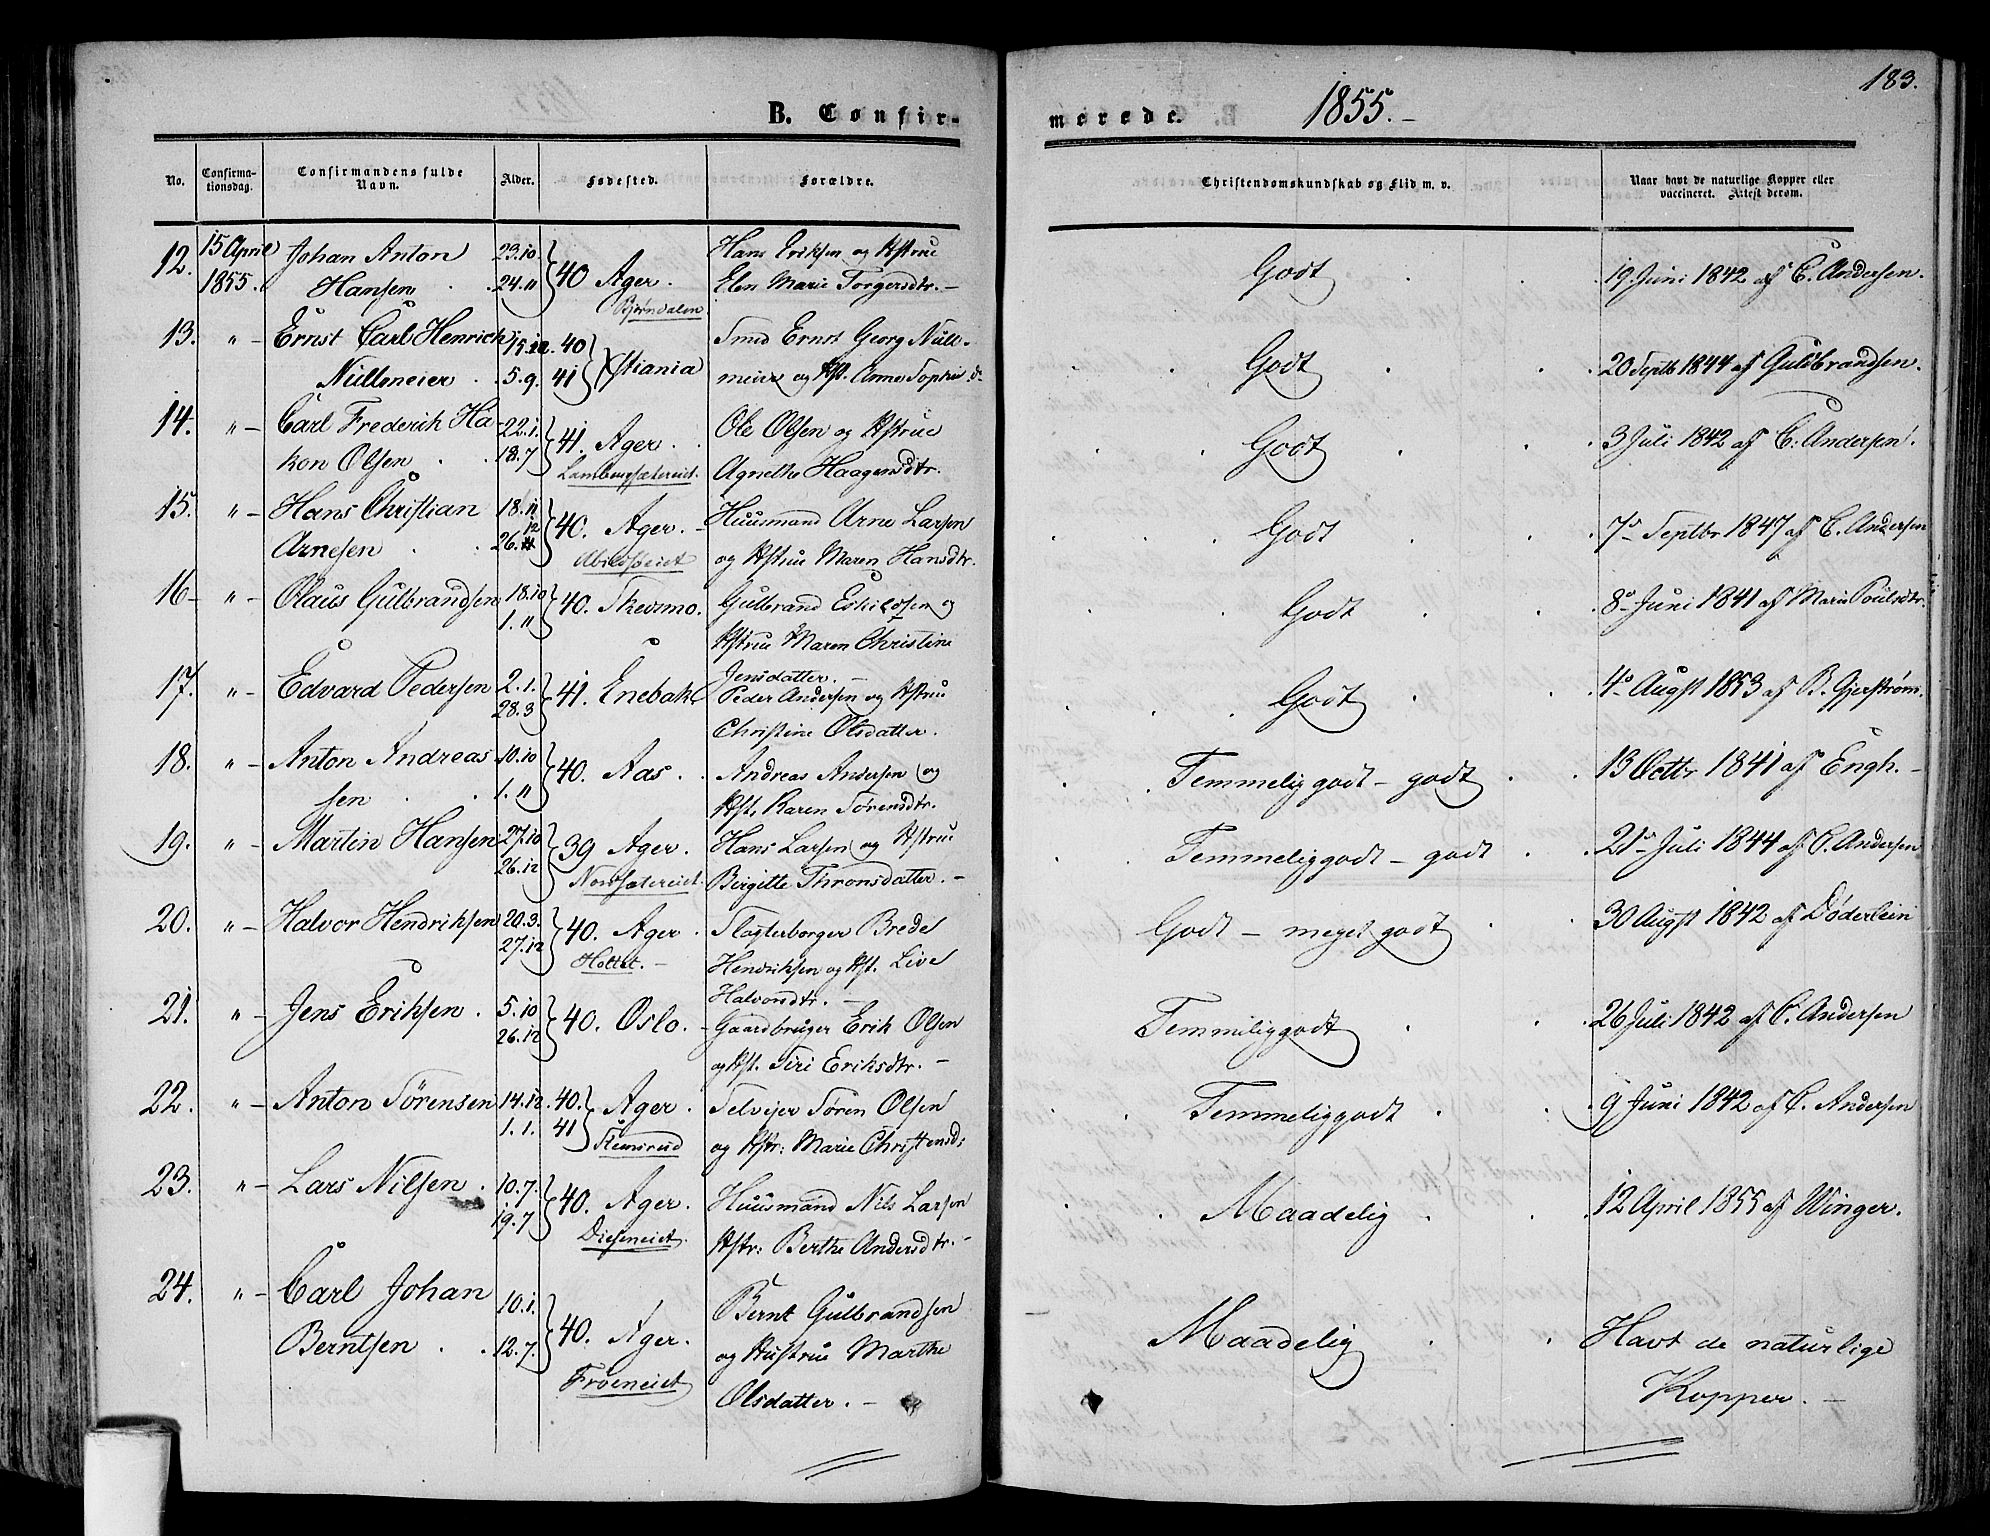 183.
B. Confirmerede. 1855.
No. Confirmationsdag. Confirmandens fulde Navn. Alder. Fødested. Forældre. Christendomskundskab og Flid m. v. Naar havt de naturlige Kopper eller vaccineret. Attest derom.
12. 15 April Johan Anton 23.10. 40 Ager. Hans Eriksen og Hstrue Godt 19 Juni 1842 af C. Andersen.
1855. Hansen 24.11 Bjørndalen Elen Marie Torgersdtr.
13. " Ernst Carl Henrich 15.12. 40 Xstiania Smed Ernst Georg Null- Godt 20 Septb 1844 af Guldbrandsen.
Nullemeier 5.9. 41 meier og Hst. Anne Sophie do
14. " Carl Frederik Ha- 22.1. 41. Ager Ole Olsen og Hstrue Godt 3 Juli 1842 af C. Andersen.
kon Olsen 18.7 Agnethe Haagensdtr.
15. " Hans Christian 18.11 40. Ager. Huusmand Arne Larsen Godt 7de Septbr 1847 af C. Andersen
Arnesen 26.12 Abildsøeiet og Hstrue Maren Hansdtr.
16 " Olaus Gulbrandsen 18.10 40. Skedsmo. Gulbrand Eskildsen og Godt 8de Juni 1841 af Marie Poulsdtr.
1.11 Hstrue Maren Christine
Jensdatter.
17. " Edvard Pedersen 2.1. 41. Enebak Peder Andersen og Hstrue Godt 4de Augst 1853 af B. Gjerstrøm.
28.3 Christine Olsdatter.
18. " Anton Andreas 10.10 40. Aas. Andreas Andersen og Temmelig godt – godt 13 Octbr 1841 af Engh.
sen 1.11 Hst. Karen Sørensdtr.
19. " Martin Hansen 27.10 39 Ager. Hans Larsen og Hstrue Temmelig godt – godt 21de Juli 1844 af C. Andersen
26.12 Birgitte Thronsdatter.
20. " Halvor Hendriksen 20.3. 40. Ager Slagterborger Brede Godt – meget godt 30 Augst 1842 af Døderlein
27.12 Holtet. Hendriksen og Hst. Live
Halvorsdtr.
21. " Jens Eriksen. 5.10 40. Oslo. Gaardbruger Erik Olsen Temmelig godt 26 Juli 1842 af C. Andersen
26.12 og Hst. Siri Eriksdtr.
22. " Anton Sørensen 14.12. 40. Ager. Selveier Søren Olsen Temmelig godt 9 Juni 1842 af C. Andersen
1.1. 41 Stensrud og Hstr: Marie Christensd:
23. " Lars Nilsen. 10.7. 40. Ager. Huusmand Nils Larsen Maadelig 12 April 1855 af Winger.
19.7 Diseneiet. Hstr: Berthe Andersdtr.
24. " Carl Johan 10.1. 40. Ager. Bernt Gulbrandsen Maadelig Havt de naturlige
Berntsen 12.7. Frøeneiet og Hustrue Marthe Kopper.
Olsdatter.